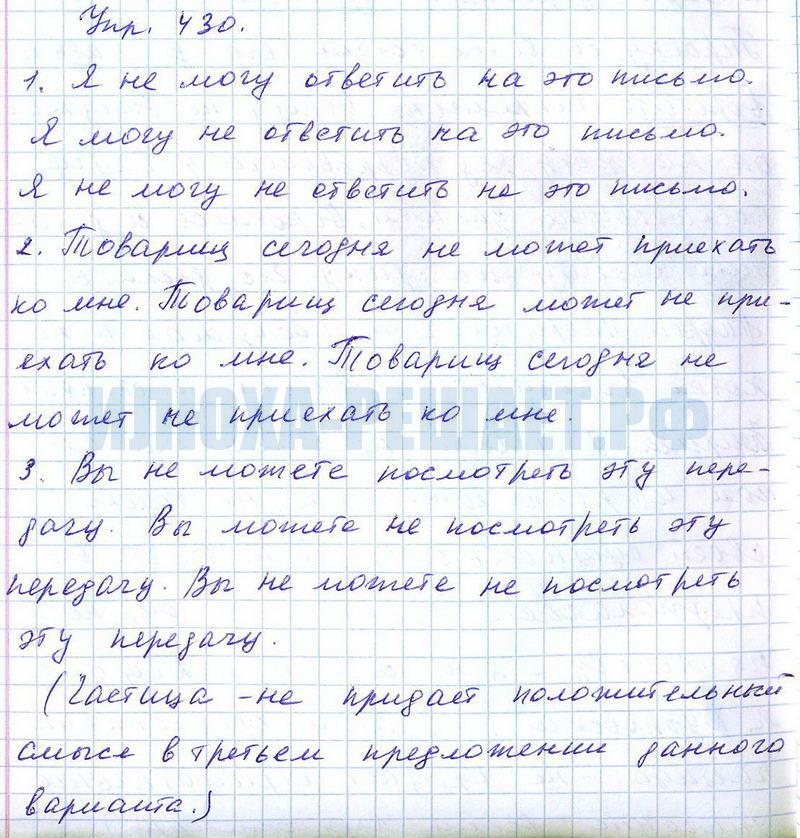 Упр. 430.
1. Я не могу ответить на это письмо.
Я могу не ответить на это письмо.
Я не могу не ответить на это письмо.
2. Товарищ сегодня не может приехать
ко мне. Товарищ сегодня может не при-
ехать ко мне. Товарищ сегодня не
может не приехать ко мне.
ИЛЮХА-РЕШАЕТ.РФ
3. Вы не можете посмотреть эту пере-
дачу. Вы можете не посмотреть эту
передачу. Вы не можете не посмотреть
эту передачу.
(Частица -не придает положительный
смысл в третьем предложении данного
варианта.)